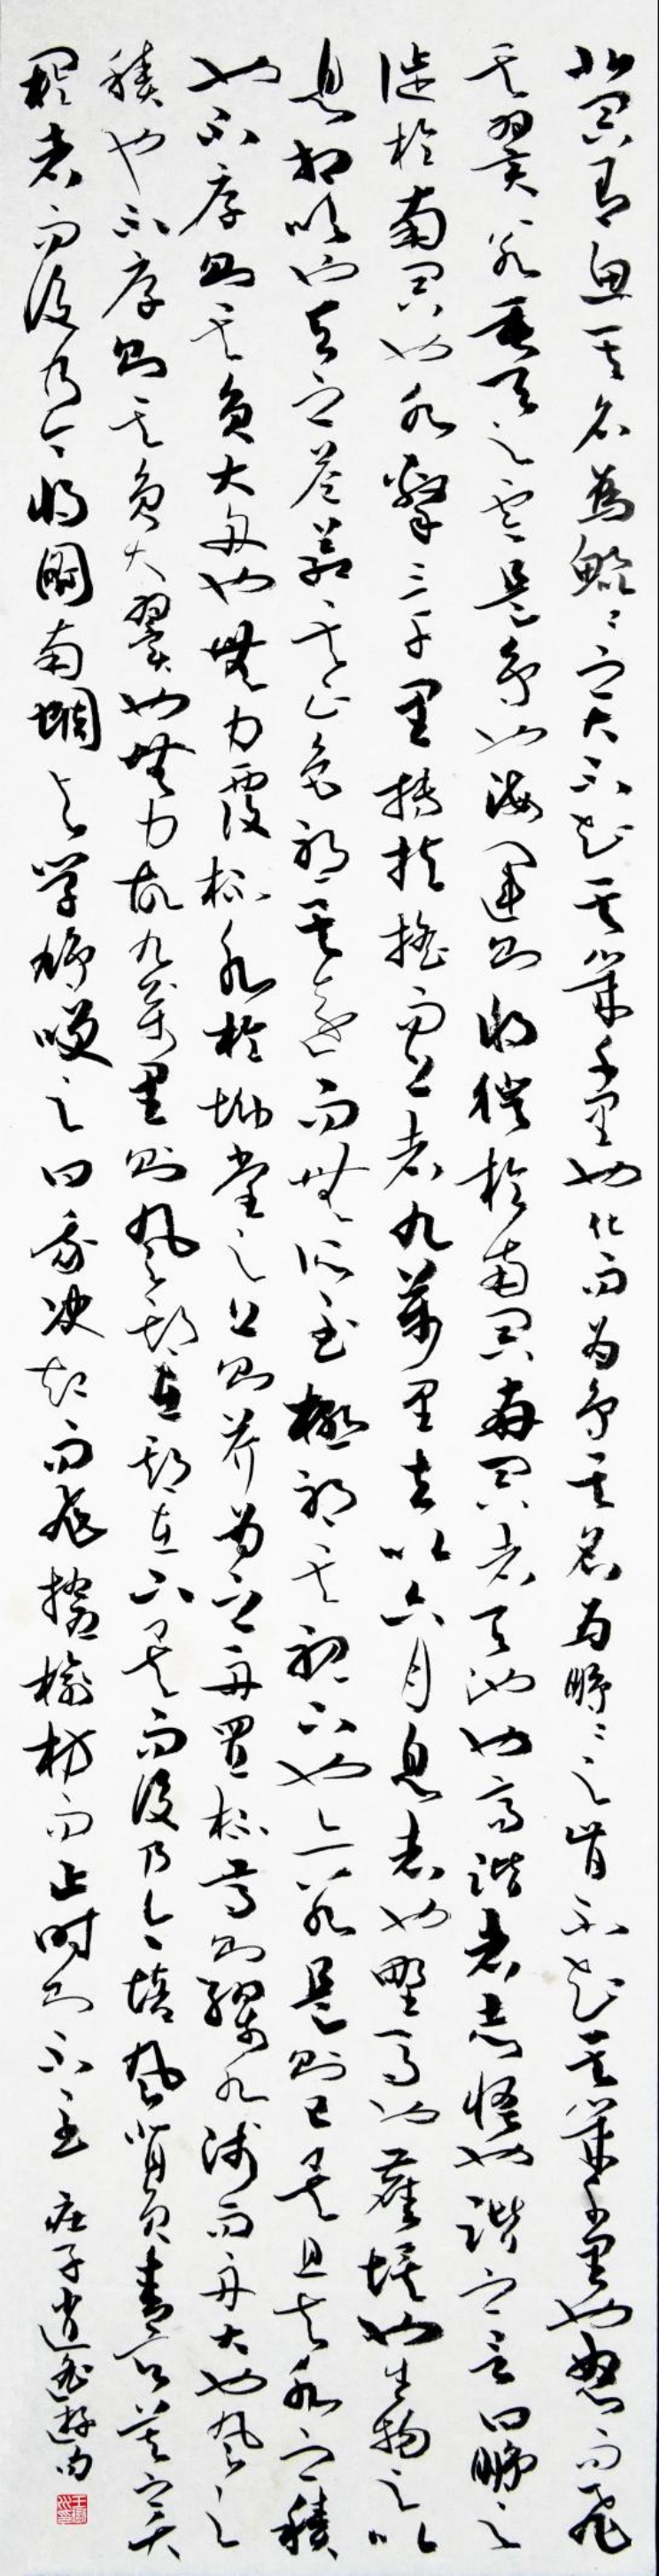 北冥有魚其名為鯤〻之大不知其幾千里也化而為鳥其名為鵬〻之背不知其幾千里也怒而飛
其翼若垂天之雲是鳥也海運則將徙於南冥南冥者天池也齊諧者志怪也諧之言曰鵬之
徙於南冥也水擊三千里摶扶搖而上者九萬里去以六月息者也野馬也塵埃也生物之以
息相吹也天之蒼〻其正色邪其遠而無所至極邪其視下也亦若是則已矣且夫水之積
也不厚則其負大舟也無力覆杯水於坳堂之上則芥為之舟置杯焉則膠水淺而舟大也風之
積也不厚則其負大翼也無力故九萬里則風斯在斯在下矣而後乃今培風背負青天莫之夭
閼者而後乃今將圖南蜩與學鳩咲之曰我決起而飛搶榆枋而止時則不至 莊子逍遙遊句